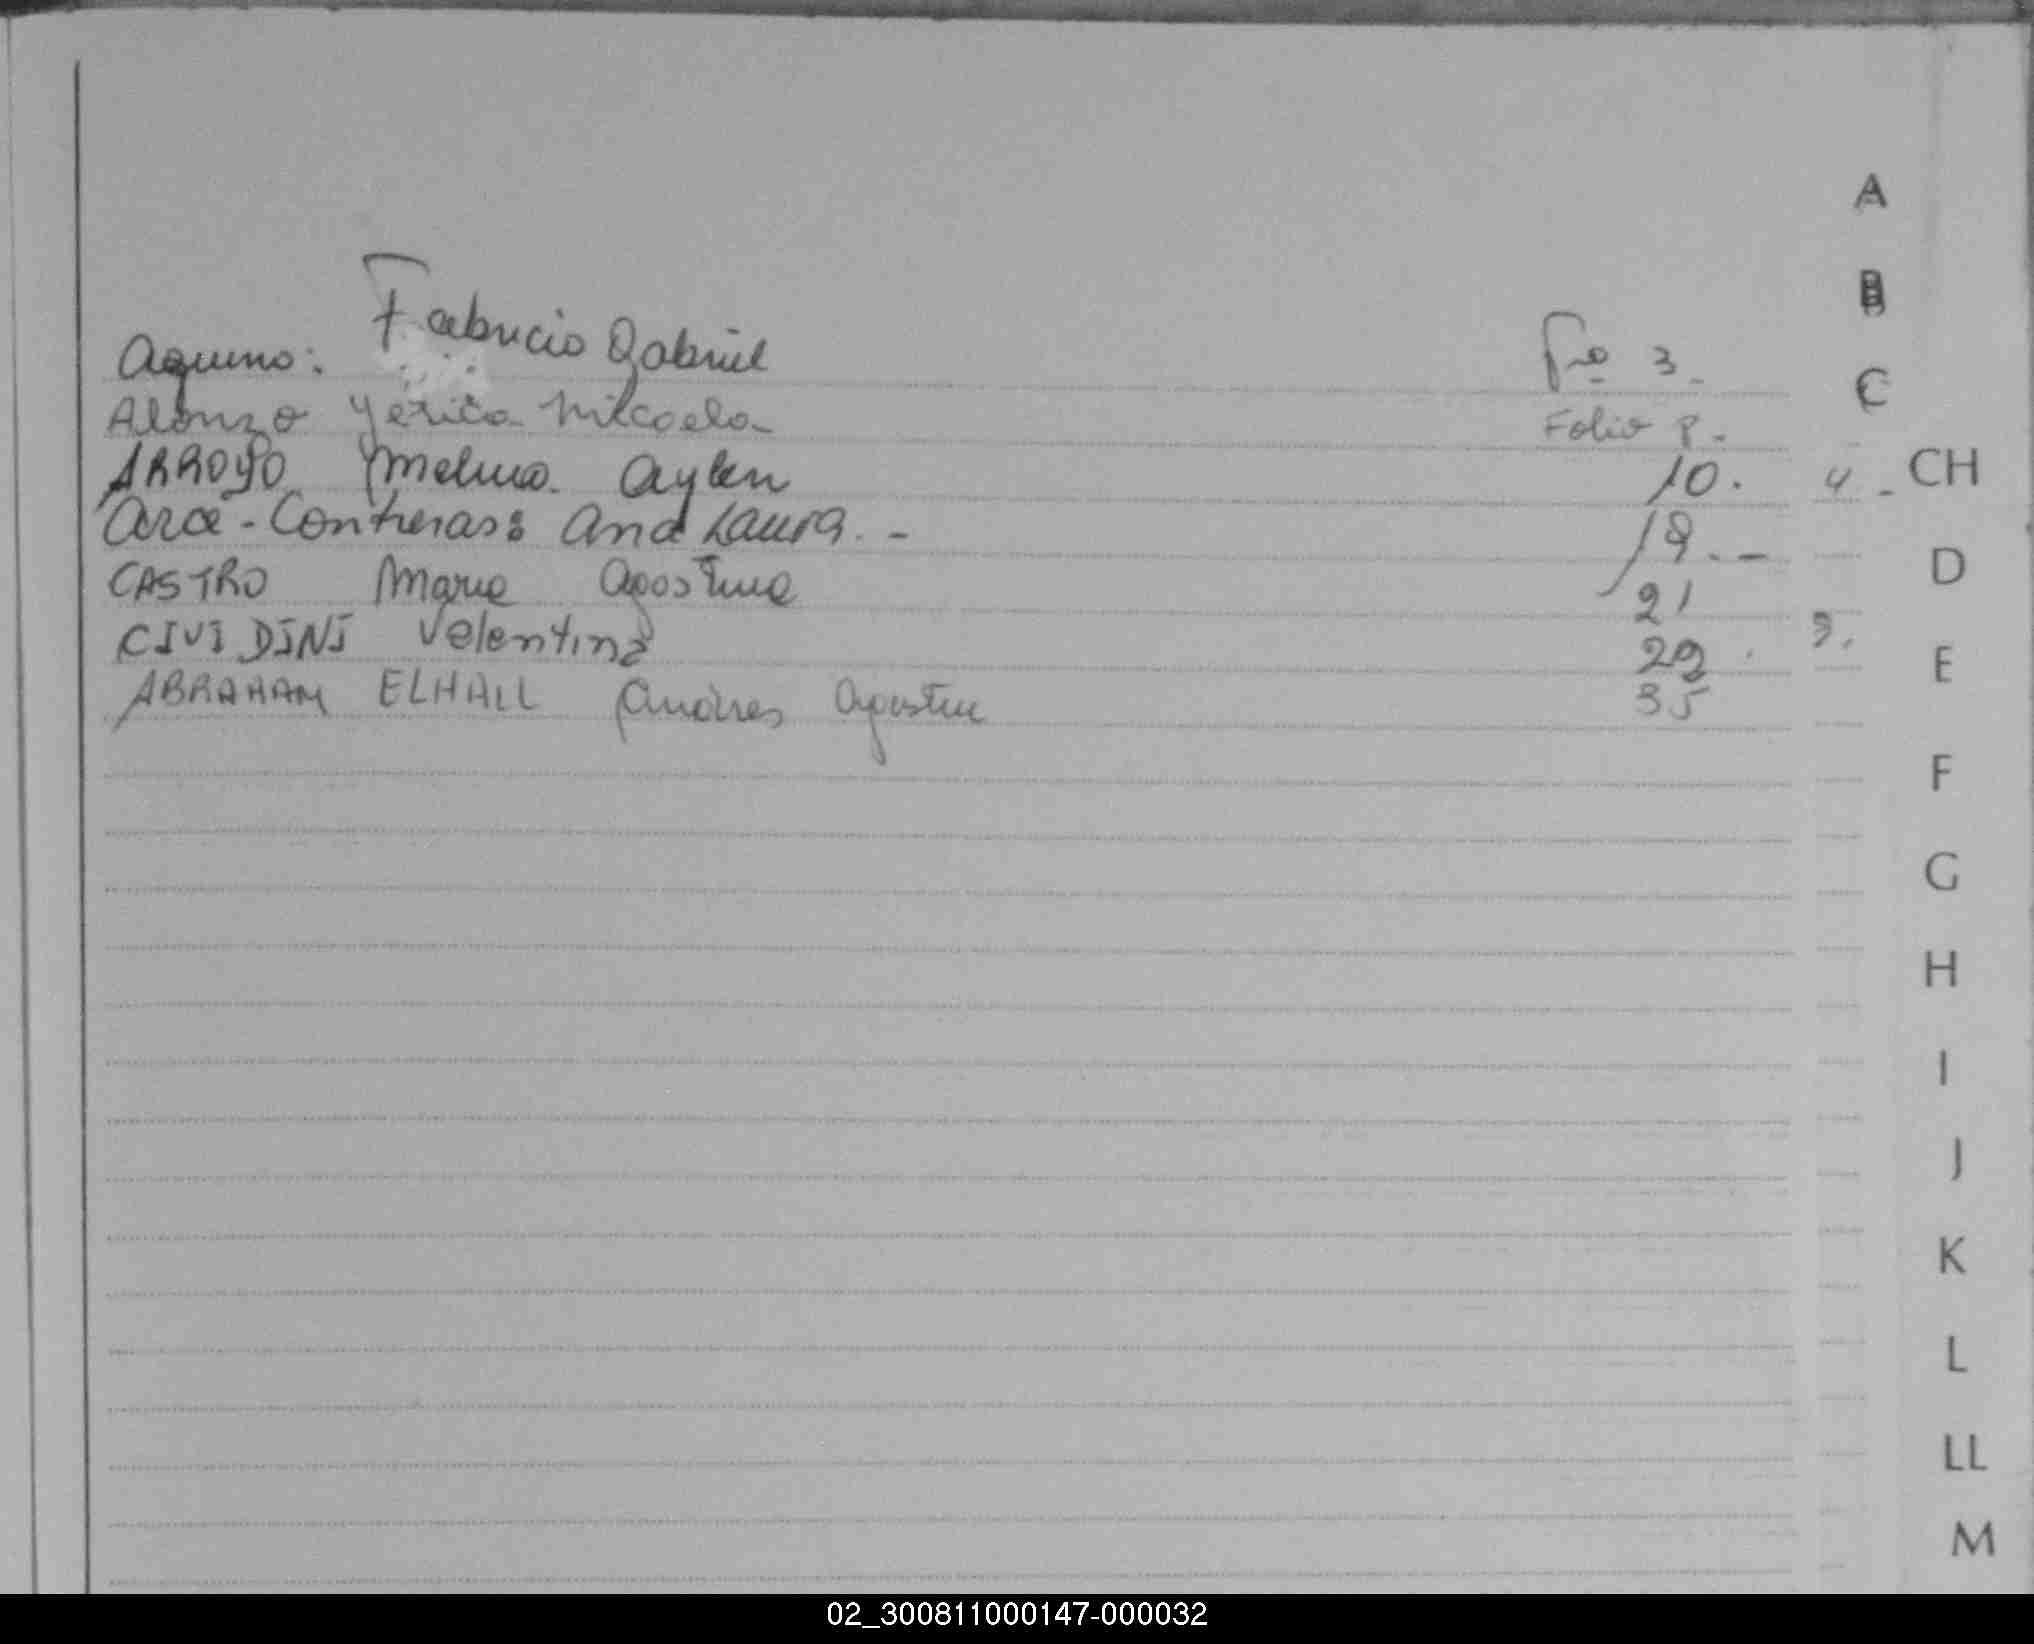 Aquino: Fabricio Gabriel Fº 3.
Alonzo Yesica Micaela Folio 8.
ARROYO Melina Aylen 10.
Arce - Contreras: Ana Laura. - 18. -
CASTRO Maria Agostina 21
CIVIDINI Valentina 29
ABRAHAM ELHALL Andres Agostin 35
A
B
C
CH
D
E
F
G
H
I
J
K
L
LL
M
02_300811000147-000032